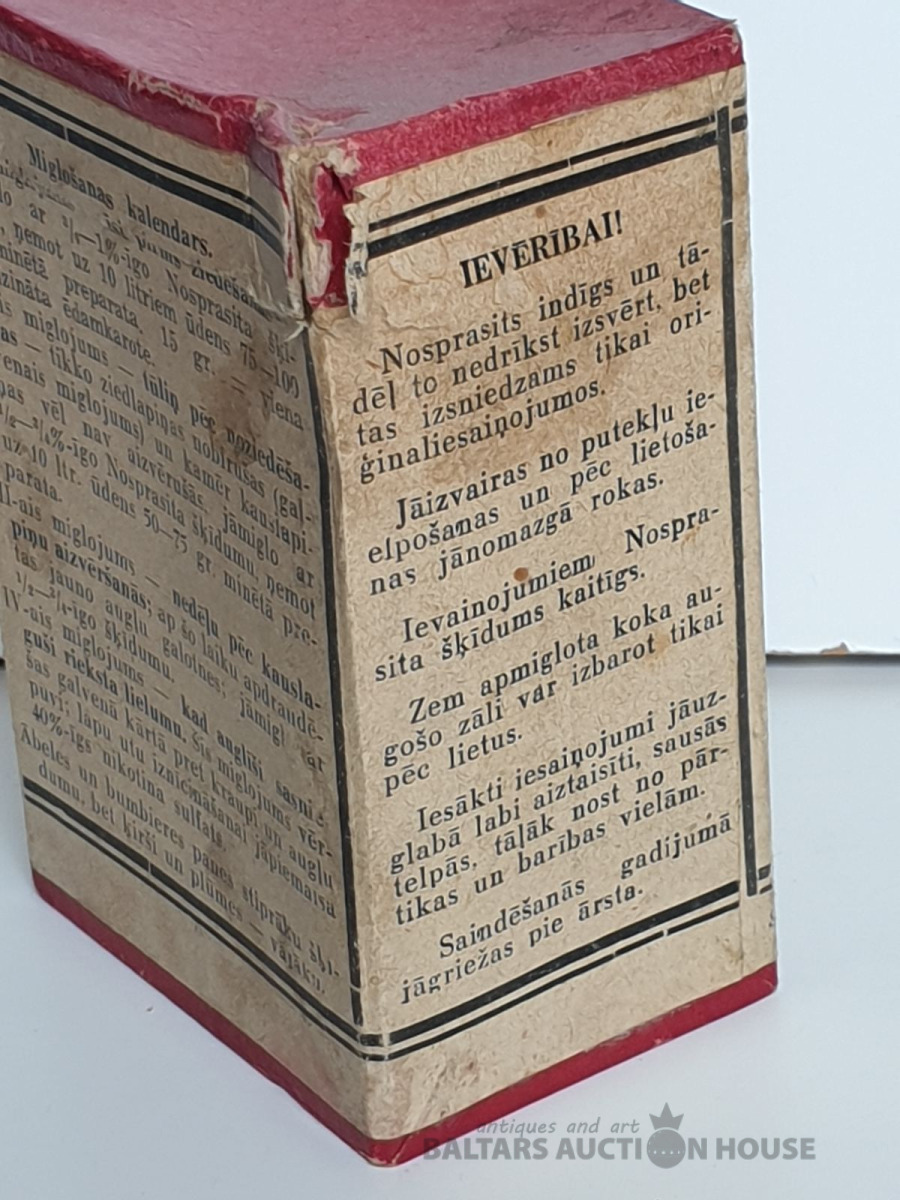 Miglošanas kalendars.
ar ³/₄—1%-īgo Nosprasita šķī-
ņemot uz 10 litriem ūdens 75—100
minētā preparata. 15 gr. — viena
ēdamkarote.
miglojums — tūliņ pēc noziedēša-
— tikko ziedlapiņas nobirušas (gal-
venais miglojums) un kamēr kauslapi-
vēl nav aizvērušās, jāmiglo ar
³/₄%-īgo Nosprasita šķīdumu, ņemot
uz 10 ltr. ūdens 50—75 gr. minētā pre-
parata.
II-ais miglojums — nedēļu pēc kausla-
piņu aizvēršanās; ap šo laiku apdraudē-
tas jauno augļu galotnes; jāmiglo ar
¹/₂—³/₄-īgo šķīdumu.
IV-ais miglojums — kad augļiši sasnie-
guši rieksta lielumu. Šis miglojums vēr-
šas galvenā kārtā pret kraupi un augļu
puvi; lapu utu iznīcināšanai jāpiemaisa
40%-īgs nikotina sulfats.
Ābeles un bumbieres panes stiprāku šķī-
dumu, bet ķirši un plūmes — vājāku.
IEVĒRĪBAI!
Nosprasits indīgs un tā-
dēļ to nedrīkst izsvērt, bet
tas izsniedzams tikai ori-
ģinaliesaiņojumos.
Jāizvairas no putekļu ie-
elpošanas un pēc lietoša-
nas jānomazgā rokas.
Ievainojumiem Nospra-
sita šķīdums kaitīgs.
Zem apmiglota koka au-
gošo zāli var izbarot tikai
pēc lietus.
Iesākti iesaiņojumi jāuz-
glabā labi aiztaisīti, sausās
telpās, tāļāk nost no pār-
tikas un barības vielām.
Saindēšanās gadijumā
jāgriežas pie ārsta.
antiques and art
BALTARS AUCTION HOUSE